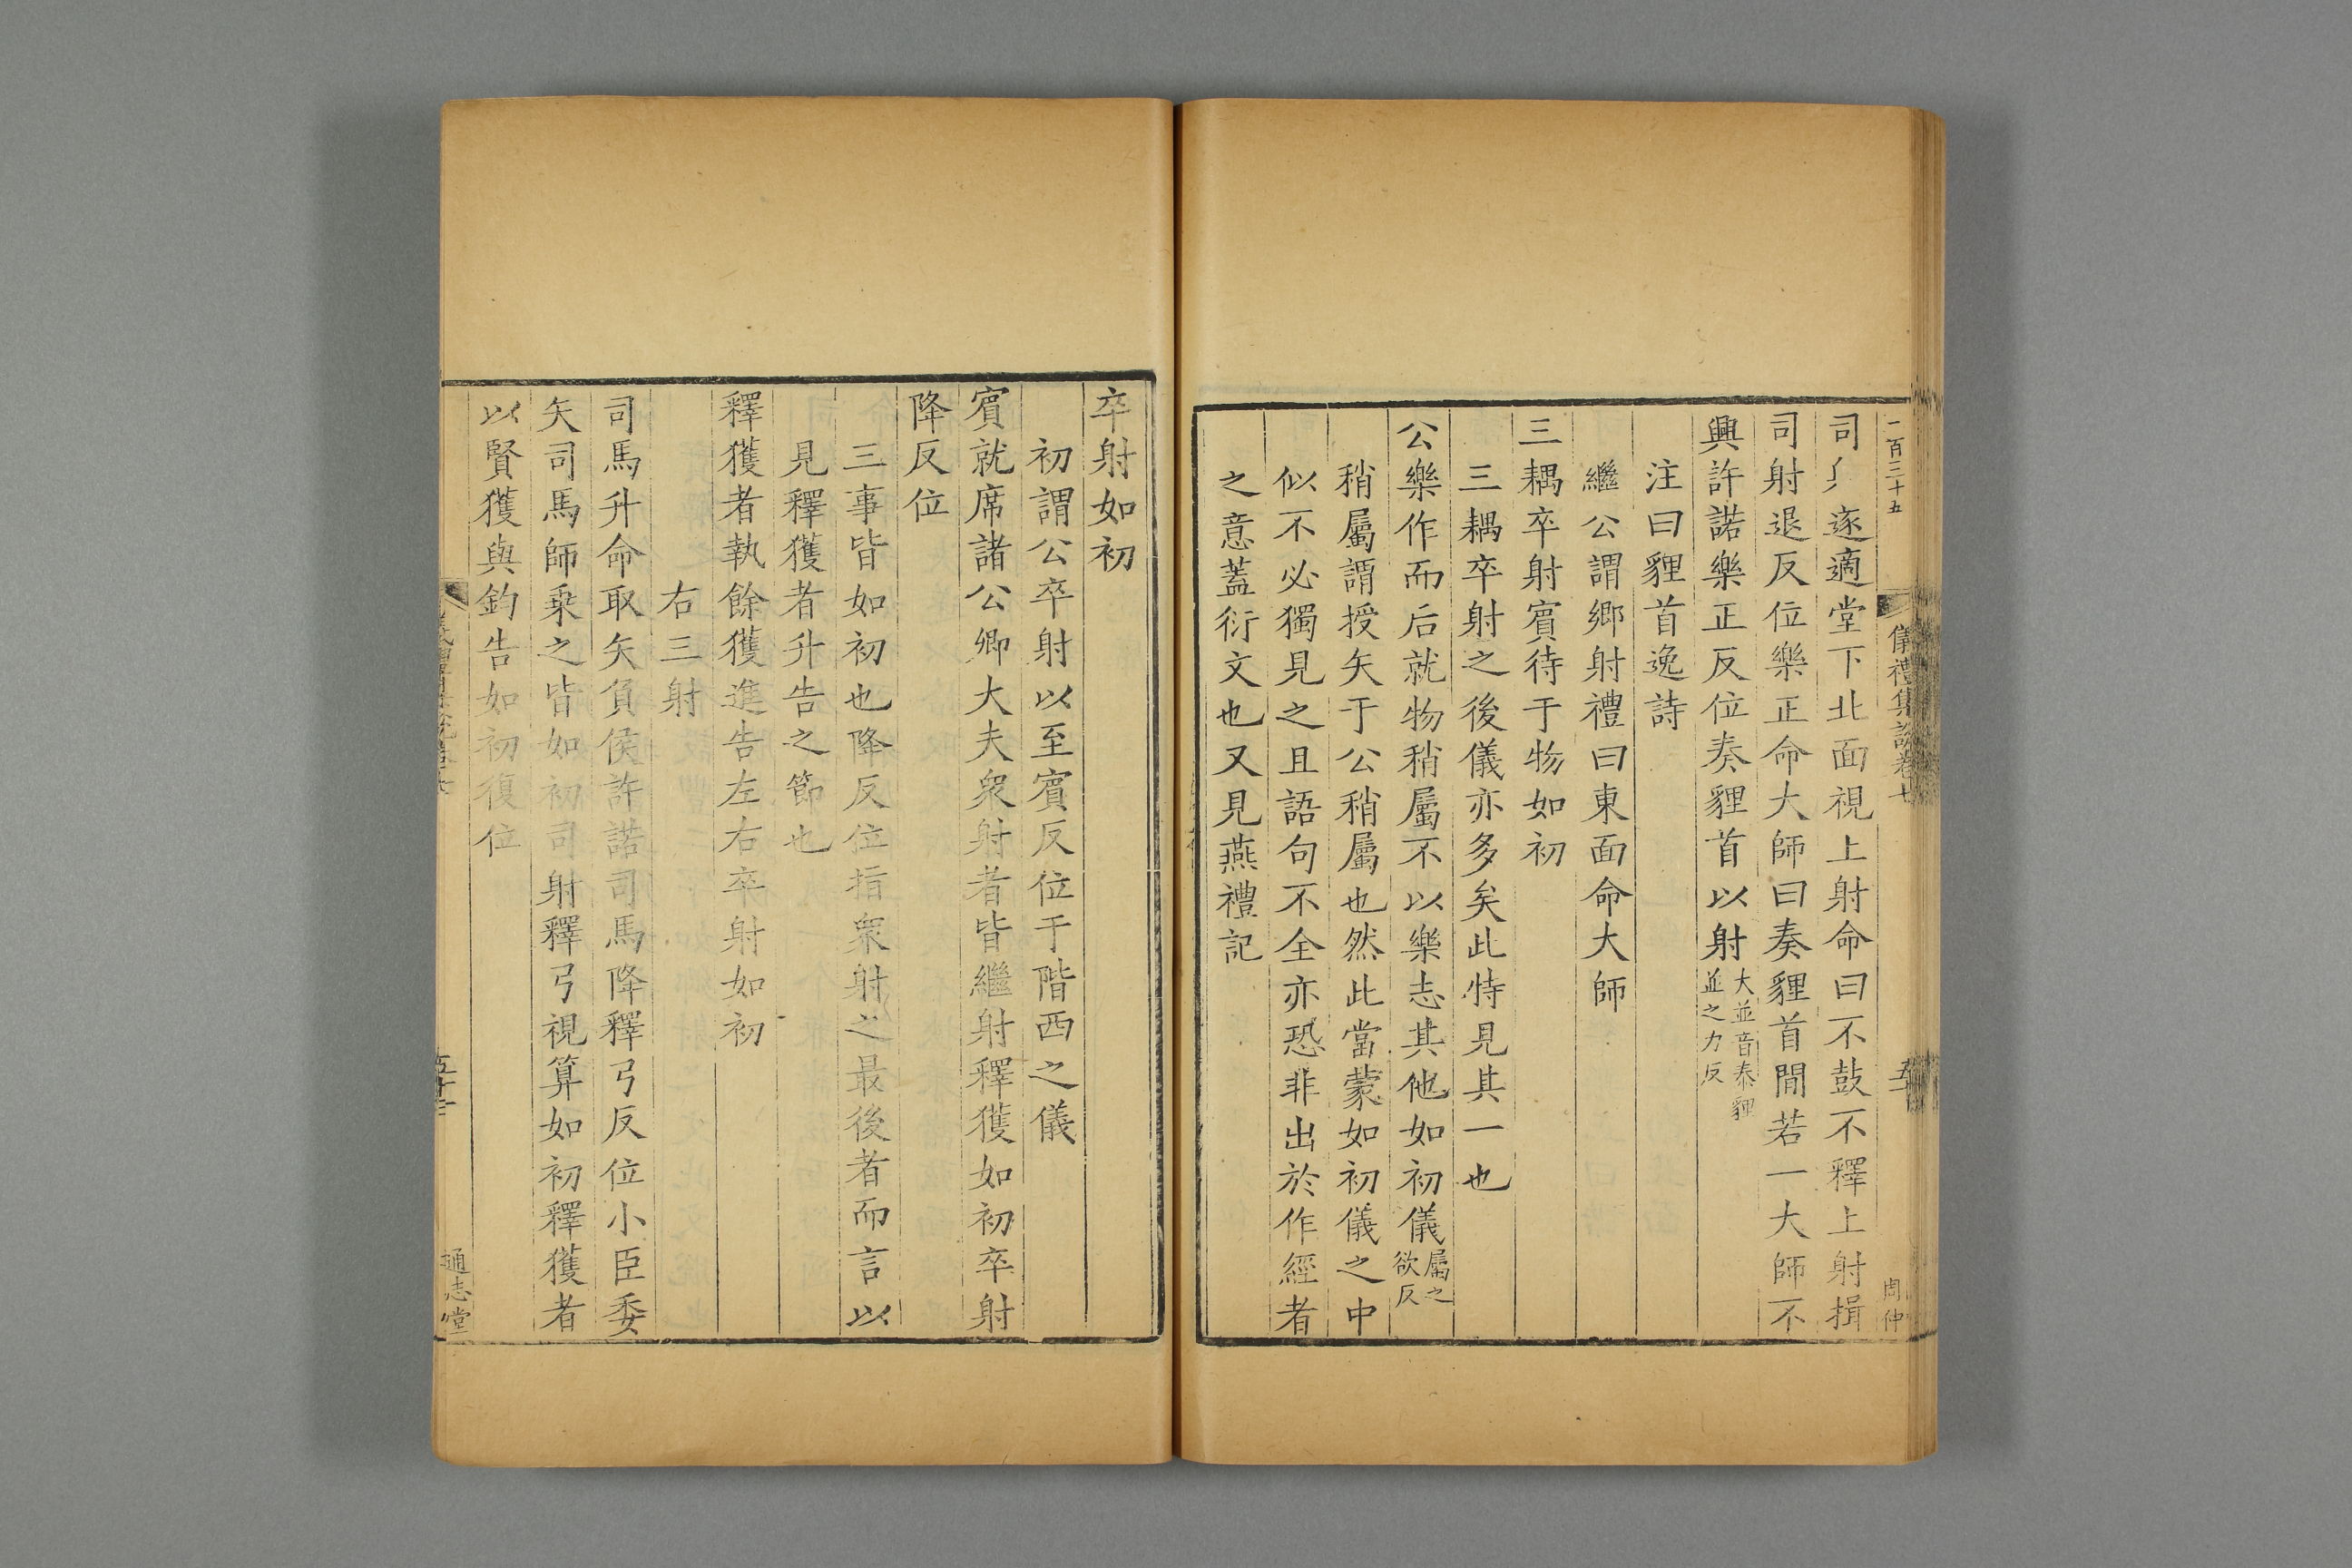 二百三十五
儀禮集說卷七
周仲
司 遂適堂下北面視上射命曰不鼓不釋上射揖
司射退反位樂正命大師曰奏貍首間若一大師不
興許諾樂正反位奏貍首以射大並音泰貍並之力反
注曰貍首逸詩
繼公謂鄉射禮曰東面命大師
三耦卒射賓待于物如初
三耦卒射之後儀亦多矣此特見其一也
公樂作而后就物稍屬不以樂志其他如初儀屬之欲反
稍屬謂授矢于公稍屬也然此當蒙如初儀之中
似不必獨見之且語句不全亦恐非出於作經者
之意蓋衍文也又見燕禮記
卒射如初
初謂公卒射以至賓反位于階西之儀
賓就席諸公卿大夫衆射者皆繼射釋獲如初卒射
降反位
三事皆如初也降反位指衆射之最後者而言以
見釋獲者升告之節也
釋獲者執餘獲進告左右卒射如初
右三射
司馬升命取矢負侯許諾司馬降釋弓反位小臣委
矢司馬師乘之皆如初司射釋弓視算如初釋獲者
以賢獲與鈞告如初復位
通志堂